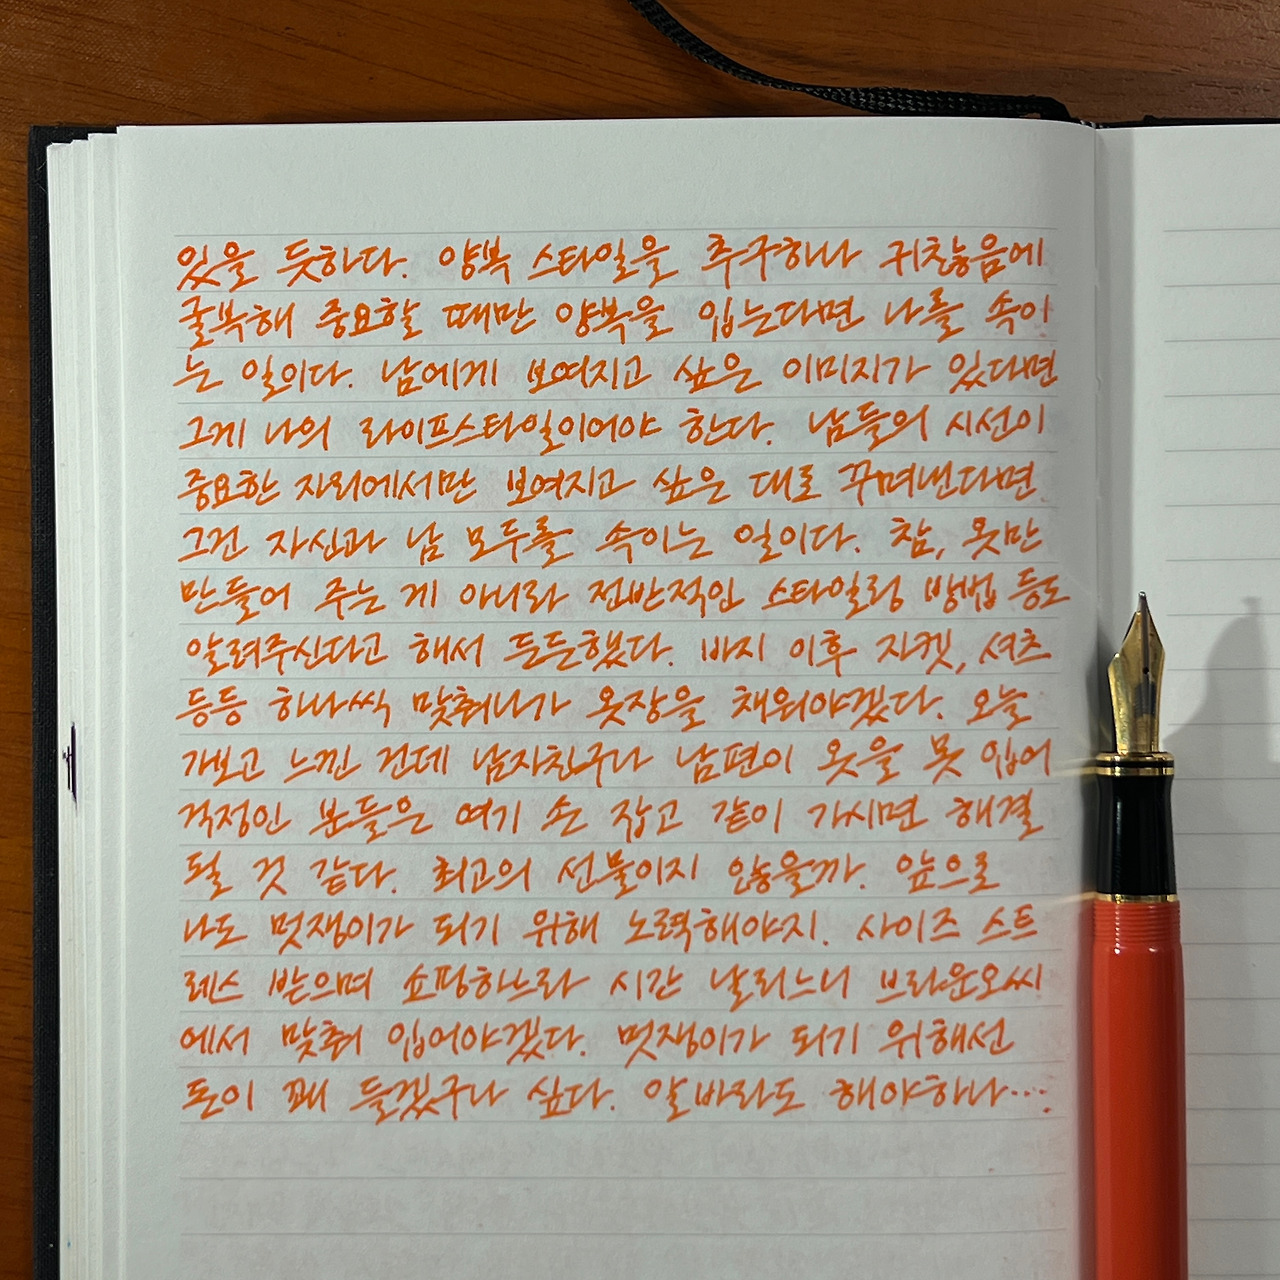 있을 듯하다. 양복 스타일을 추구하나 귀찮음에
굴복해 중요할 때만 양복을 입는다면 나를 속이
는 일이다. 남에게 보여지고 싶은 이미지가 있다면
그게 나의 라이프스타일이어야 한다. 남들의 시선이
중요한 자리에서만 보여지고 싶은 대로 꾸며낸다면
그건 자신과 남 모두를 속이는 일이다. 참, 옷만
만들어 주는 게 아니라 전반적인 스타일링 방법 등도
알려주신다고 해서 든든했다. 바지 이후 자켓, 셔츠
등등 하나씩 맞춰나가 옷장을 채워야겠다. 오늘
가보고 느낀 건데 남자친구나 남편이 옷을 못 입어
걱정인 분들은 여기 손 잡고 같이 가시면 해결
될 것 같다. 최고의 선물이지 않을까. 앞으로
나도 멋쟁이가 되기 위해 노력해야지. 사이즈 스트
레스 받으며 쇼핑하느라 시간 날리느니 브라운오씨
에서 맞춰 입어야겠다. 멋쟁이가 되기 위해선
돈이 꽤 들겠구나 싶다. 알바라도 해야하나....